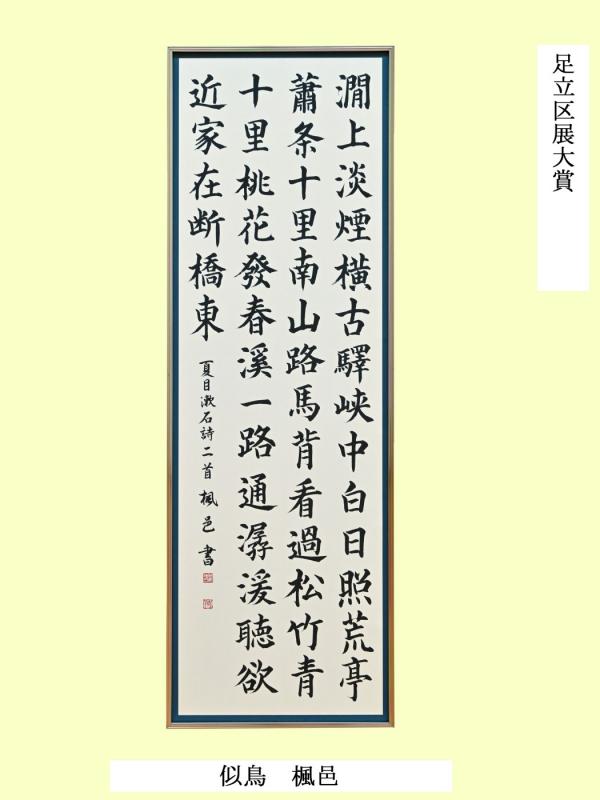 足立区展大賞
澗上淡煙横古驛峡中白日照荒亭
蕭条十里南山路馬背看過松竹青
十里桃花發春溪一路通潺湲聴欲
近家在断橋東
夏目漱石詩二首 楓邑書
似鳥 楓邑